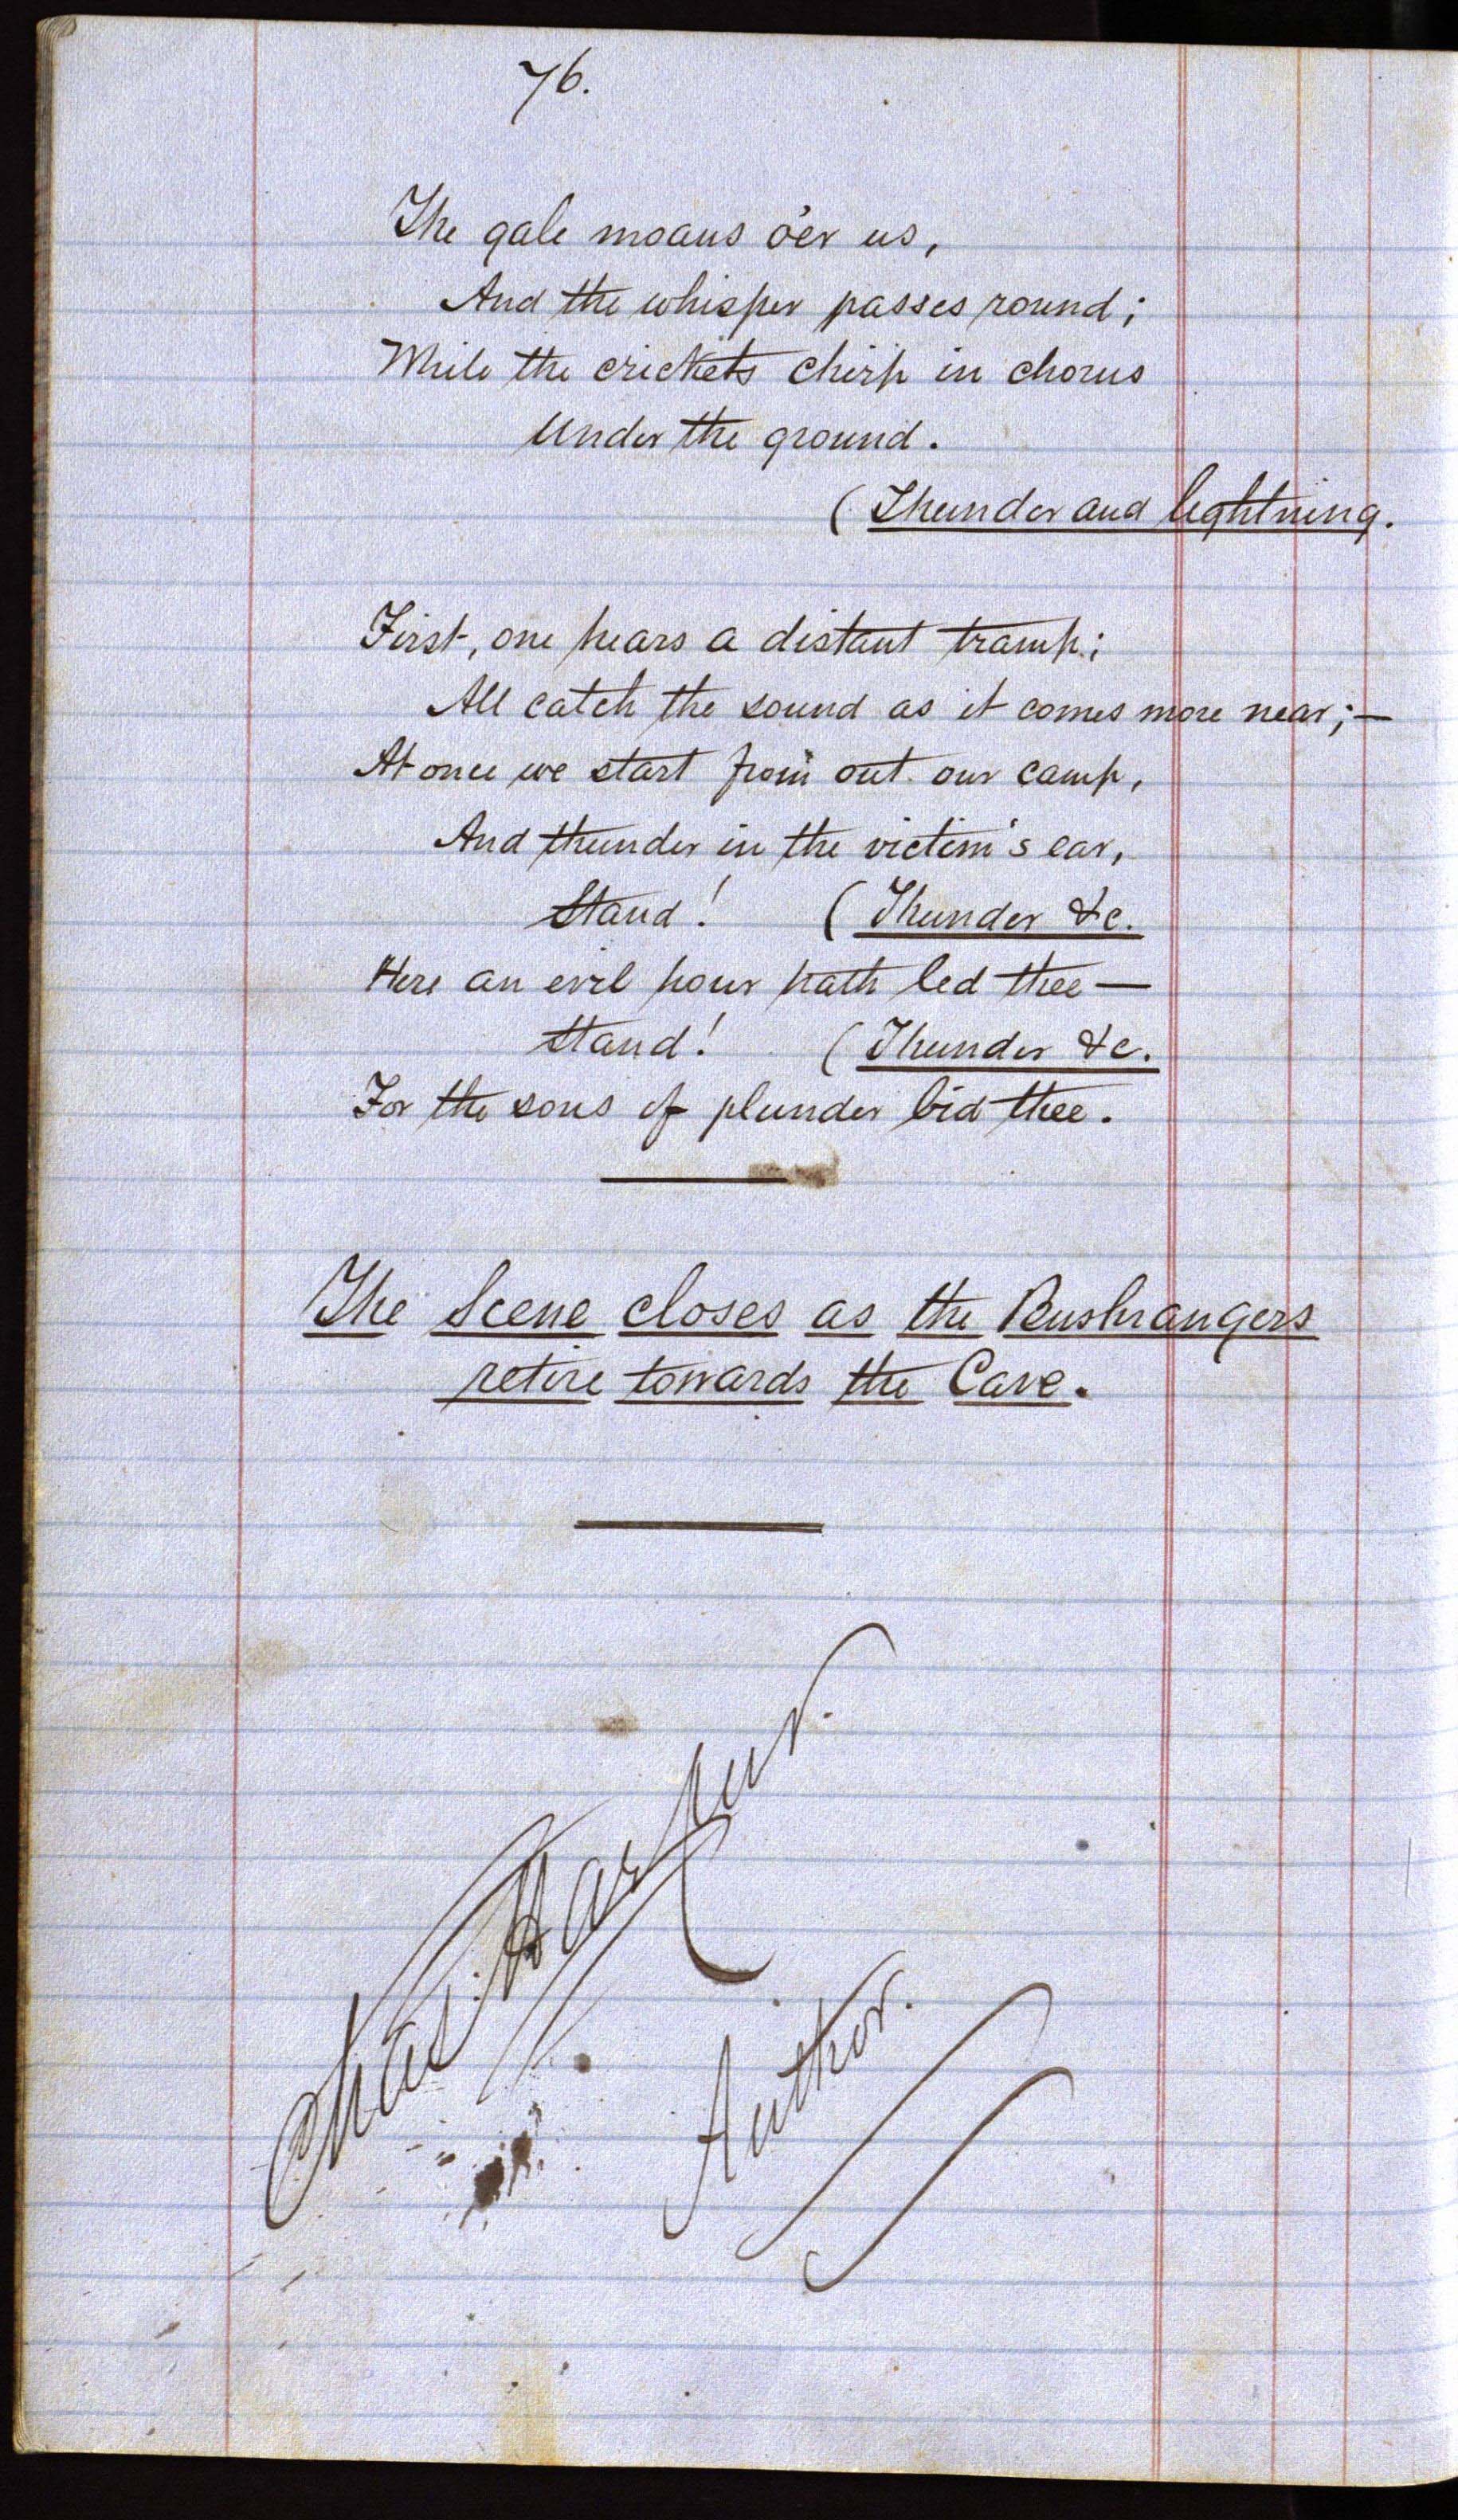 76.
The gale moans o'er us,
And the whisper passes round;
While the crickets chirp in chorus
Under the ground.
(Thunder and lightning.
First, one hears a distant tramp;
All catch the sound as it comes more near;—
At once we start from out our camp,
And thunder in the victim's ear,
Stand! (Thunder &c.
Here an evil hour hath led thee—
Stand! (Thunder &c.
For the sons of plunder bid thee.
The Scene closes as the Bushrangers
retire towards the Cave.
Chas. Harpur.
Author.